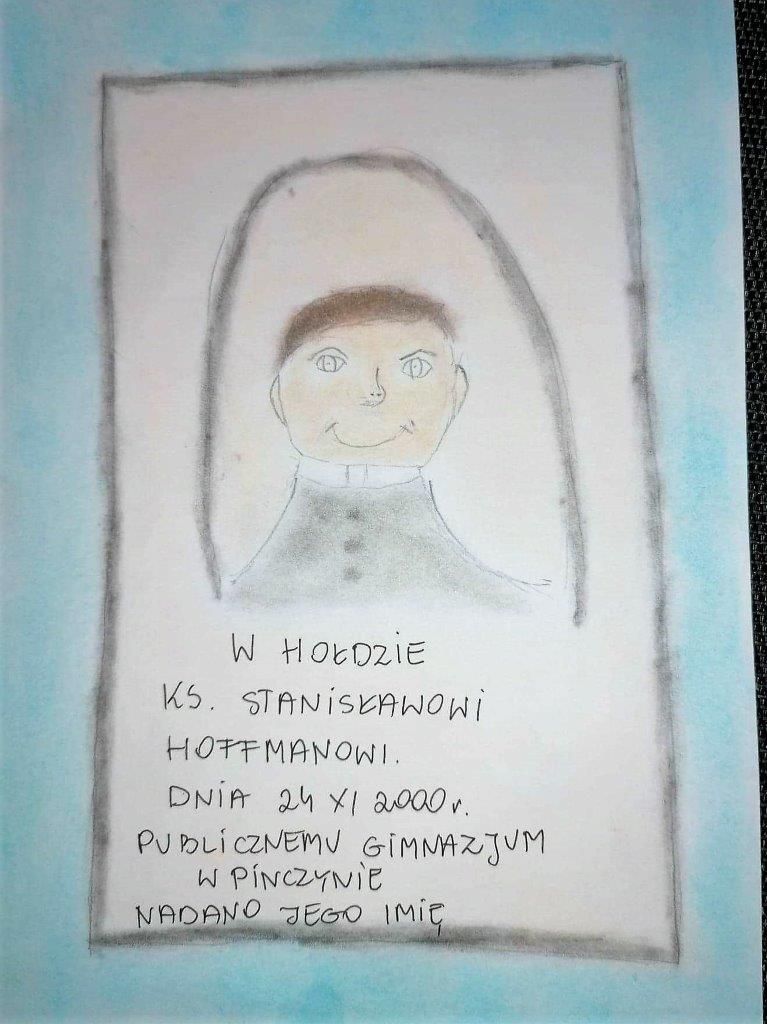 W HOŁDZIE
KS. STANISŁAWOWI
HOFFMANOWI.
DNIA 24 XI 2000r.
PUBLICZNEMU GIMNAZJUM
W PINCZYNIE
NADANO JEGO IMIĘ